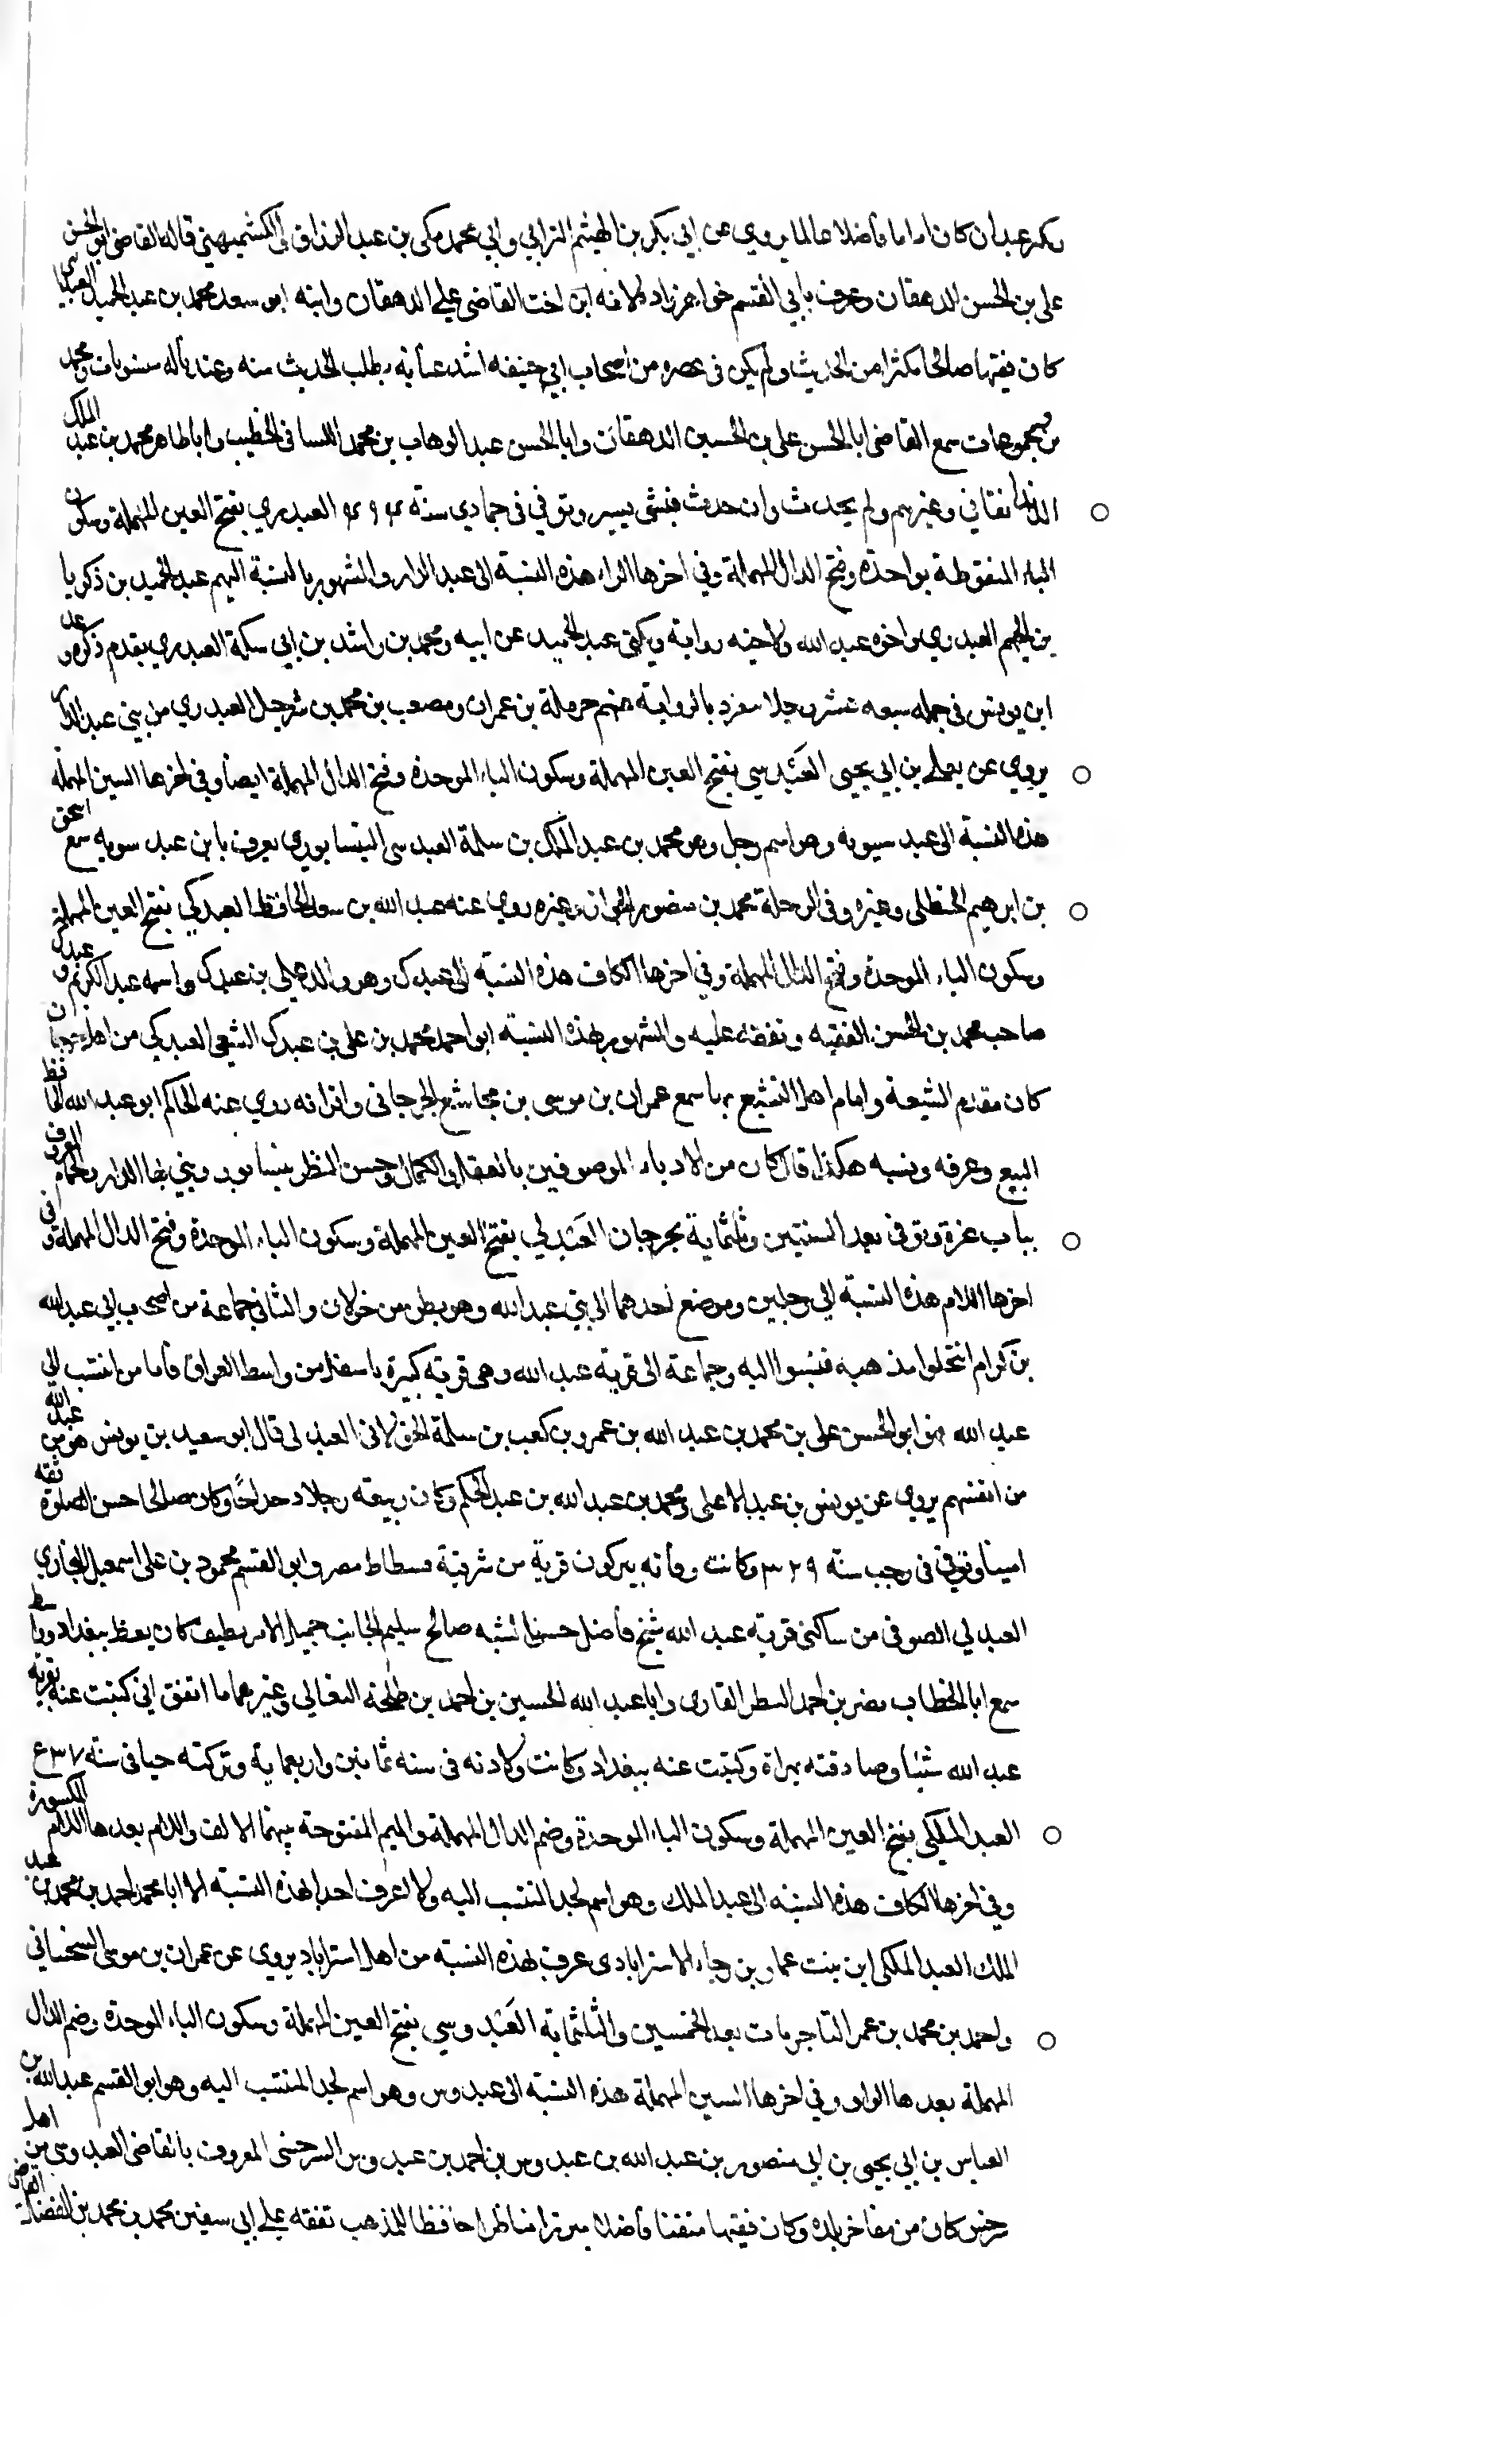 بكر عبدان كان اماما فاضلا عالما يروي عن ابي بكر بن الهيثم الترابي وابي محمد مكي بن عبد الرزاق الكشميهني قاله القاضي ابو الحسن
علي بن الحسن الدهقان وعرف بابي القسم خواهرزاد لانه ابن اخت القاضي علي الدهقان وابنه ابو سعد محمد بن عبد الحميد العبداني
كان فقيها صالحا مكثرا من الحديث ولم يكن في عصره من اصحاب ابي حنيفه اشد عنايه بطلب الحديث منه وعندنا له منسوبات ومجلد
من مجموعات سمع القاضي ابا الحسن علي بن الحسين الدهقان وابا الحسن عبد الوهاب بن محمد الكسائي الخطيب وابا طاهر محمد بن عبد الملك
الدندانقاني وغيرهم ولم يحدث وان حدث فبشي يسير وتوفي في جمادي سنة ٤٩٤ العبدري بفتح العين المهملة وسكون
الباء المنقوطة بواحدة وفتح الدال المهملة وفي اخرها الراء هذه النسبة الى عبد الدار والمشهور بالنسبة اليهم عبد الحميد بن زكريا
بن الجهم العبدري واخوه عبد الله ولاخيه رواية ويكنى عبد الحميد عن ابيه ومحمد بن راشد بن ابي سكنة العبدري تقدم ذكره وعد
ابن يونس في جملة سبعه عشر رجلا مفرد بالرواية منهم حرملة بن عمران ومصعب بن محمد بن شرحبل العبدري من بني عبد الدار
يروي عن يعلي بن ابي يحيى العبدسي بفتح العين المهملة وسكون الباء الموحدة وفتح الدال المهملة ايضا وفي اخرها السين المهملة
هذه النسبة الى عبد سيويه وهو اسم رجل وهو محمد بن عبد الملك بن سلمة العبدسي النيسابوري يعرف بابن عبد سويه سمع اسحق
بن ابرهيم الحنظلي وغيره وفي الرحلة محمد بن منصور الجواز وغيره روي عنه عبد الله بن سعد الحافظ العبدكي بفتح العين المهملة
وسكون الباء الموحدة وفتح الدال المهملة وفي اخرها الكاف هذه النسبة الى عبدك وهو والد علي بن عبدك واسمه عبد الكريم وعبدك
صاحب محمد بن الحسن الفقيه وتفقه عليه والمشهور بهذه النسبة ابو احمد محمد بن علي بن عبدك الشيعي العبدكي من اهل جرجان
كان مقدم الشيعة وامام اهل التشيع بها سمع عمران بن موسى بن مجاشع الجرجاني واقرانه روي عنه الحاكم ابو عبد الله الحافظ
البيع وعرفه ونسبه هكذا قال كان من الادباء الموصوفين بالعقل والكمال وحسن النظر بنيسابور وبني بها الدار والحمام المعروف
بباب عزة وتوفي بعد الستين وثلثماية بجرجان العبدلي بفتح العين المهملة وسكون الباء الموحدة وفتح الدال المهملة وفي
اخرها اللام هذه النسبة الى رجلين وموضع احدهما الى بني عبد الله وهو بطن من خولان والثاني جماعة من اصحاب ابي عبد الله
بن كرام انتحلوا مذهبه فنسبوا اليه وجماعة الى قرية عبد الله وهي قرية كبيرة باسفل من واسط العراق فاما من انتسب الى
عبد الله فهو ابو الحسن علي بن محمد بن عبد الله بن عمرو بن كعب بن سلمة الخولاني العبدلي قال ابو سعيد بن يونس هو من عبد الله
من انفسهم يروي عن يونس بن عبد الاعلى ومحمد بن عبد الله بن عبد الحكم وكان ربيعه رجلا دحداحا وكان صالحا حسن الصلوة ثقه
امينا وتوفي في رجب سنة ٣٢٩ وكانت وفاته ببركون قرية من شرقية فسطاط مصر وابو القسم محمود بن علي اسمعيل البخاري
العبدلي الصوفي من ساكني قرية عبد الله شيخ فاضل حسن الشبه صالح سليم الجانب جميل الامر لطيف كان يعظ ببغداد وواسط
سمع ابا الخطاب نصر بن احمد البطر القاري وابا عبد الله الحسين بن احمد بن طلحة النعالي وغيرهما ما اتفق اني كتبت عنه بقرية
عبد الله شيئا وصادفته بهراة وكتبت عنه ببغداد وكانت ولادته في سنه ثمانين واربعماية وتركته حيا في سنة ٤٣٧
العبد المليكي بفتح العين المهملة وسكون الباء الموحدة وضم الدال المهملة والميم المفتوحة بينهما الالف واللام بعدها اللام المكسورة
وفي اخرها الكاف هذه النسبه الى عبد الملك وهو اسم لجد المنتسب اليه ولا اعرف احدا بهذه النسبة الا ابا محمد احمد بن محمد بن عبد
الملك العبد الملكي ابن بنت عمار بن رجاء الاستراباذي عرف بهذه النسبة من اهل استراباد يروي عن عمران بن موسى السختياني
واحمد بن محمد بن عمر التاجر مات بعد الخمسين والثلثماية العبدوسي بفتح العين المهملة وسكون الباء الموحدة وضم الدال
المهملة بعدها الواو وفي اخرها السين المهملة هذه النسبة الى عبدوس وهو اسم لجد المنتسب اليه وهو ابو القسم عبد الله بن
العباس بن ابي يحيى بن ابي منصور بن عبد الله بن عبدوس بن احمد بن عبدوس السرخسي المعروف بالقاضي العبدوسي من اهل
سرخس كان من مفاخر بلده وكان فقيها متقنا فاضلا مبرزا مناظرا حافظا للمذهب تفقه علي ابي سفين محمد بن محمد بن الفضل القاضي